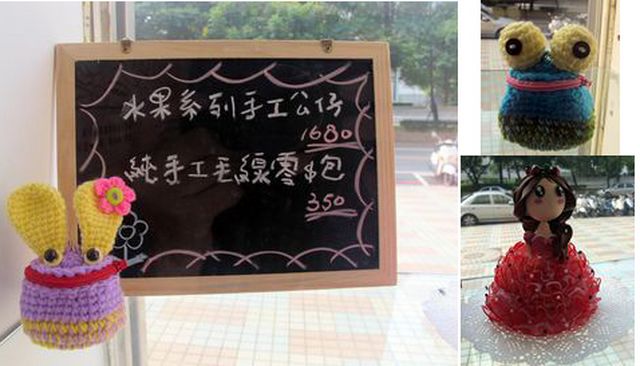 水果系列手工公仔
1680
純手工毛線零$包
350